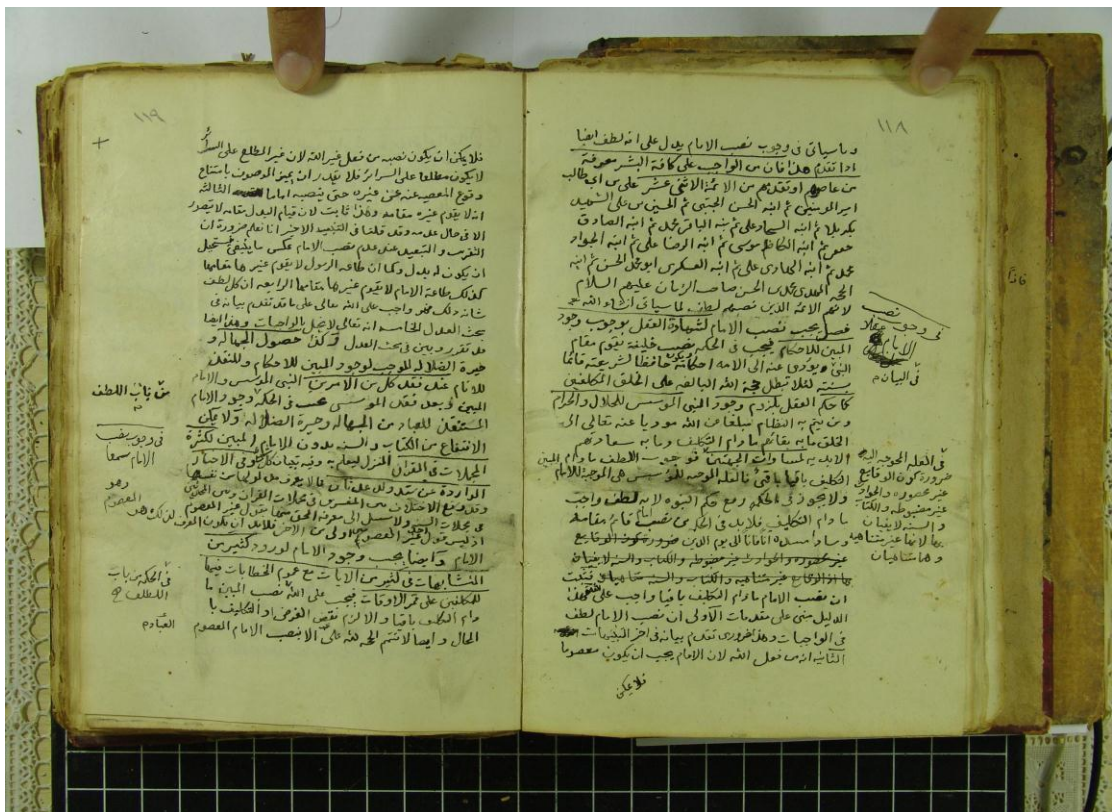 ١١٨
وما سياتي في وجوب نصب الامام يدل على انه لطف ايضا
اذا تقدم هذا فان من الواجب على كافة البشر معرفة
من عاصرهم او تقدمهم من الائمة الاثني عشر على بن ابي طالب
امير المؤمنين ثم ابنه الحسن المجتبى ثم الحسين بن على الشهيد
بكربلا ثم ابنه السجاد على ثم ابنه الباقر محمد ثم ابنه الصادق
جعفر ثم ابنه الكاظم موسى ثم ابنه الرضا على ثم ابنه الجواد
محمد ثم ابنه الهادى على ثم ابنه العسكرى ابو محمد الحسن ثم ابنه
الحجة المهدى محمد بن الحسن صاحب الزمان عليهم السلام
لانهم الائمة الذين نصبهم لطف لما سياتي انشاء الله
فصل يجب نصب الامام لشهادة العقل بوجوب وجود
المبين للاحكام فيجب في الحكمة نصب خليفة يقوم مقام
النبي ويؤدى عنه الى الامة احكامه يكون حافظا لشريعته قائما
بسنته لئلا تبطل حجة الله البالغة على الخلق المكلفين
كما حكم العقل بلزوم وجود النبي المؤسس للحلال والحرام
ومن يتم به النظام مبلغا عن الله موديا عنه تعالى الى
الخلق ما به بقائهم ما دام التكليف وما به سعادتهم
الابدية لمساوات الجهتين فوجوب اللطف ما دام المبين
التكليف باقيا باقي فالعلة الموجبة للمؤسس هي الموجبة للامام
ولا يجوز في الحكمة رفع حكم النبوة لانه لطف واجب
ما دام التكليف فلابد في الحكمة من نصب امام قائم مقامه
وساد مسده اتفاقا الى يوم الدين ضرورة كون الوقايع
غير محصورة والحوادث غير مضبوطة والكتاب والسنة لا يفيان
بها اذ الوقايع غير متناهية والكتاب والسنة متناهيان فيثبت
ان نصب الامام ما دام التكليف باقيا واجب على الله
الدليل مبنى على مقدمات الاولى ان نصب الامام لطف
في الواجبات وهذا ضرورى تقدم بيانه في اخر التنبيهات
الثانية انه من فعل الله لان الامام يجب ان يكون معصوما
فلا يمكن
في وجوب نصب
الامام عقلا
في البيان
في العلة الموجبة اليه
ضرورة كون الوقايع
غير محصورة والحوادث
غير مضبوطة والكتاب
والسنة لا يفيان
بها لانها غير متناهية
وهما متناهيان
١١٩
فلا يمكن ان يكون نصبه من فعل غير الله لان غير المطلع على السرائر
لا يكون مطلعا على السرائر فلا يقدر ان يميز الموصوف بامتناع
وقوع المعصية عنه عن غيره حتى ينصبه اماما الثالثة
انه لا يقوم غيره مقامه وهذا ثابت لان قيام البدل مقامه لا يتصور
الا في حال عدمه وقد قلنا في التنبيه الاخير انا نعلم ضرورة ان
التقريب والتبعيد عند عدم نصب الامام عكس ما ينبغي فيستحيل
ان يكون له بدل وكما ان طاعة الرسول لا يقوم غيرها مقامها
كذلك طاعة الامام لا يقوم غيرها مقامها الرابعة ان كل لطف
شانه ذلك فهو واجب على الله تعالى على ما قد تقدم بيانه في
بحث العدل الخامسة انه تعالى لا يخل بالواجبات وهذا ايضا
قد تقرر وبين في بحث العدل وكذا حصول الجهالة و
حيرة الضلالة الموجب لوجود المبين للاحكام وللنقلة
للانام عند فقد كل من الامرين النبي المؤسس والامام
المبين فبعد فقد المؤسس يجب في الحكمة وجود الامام
المستنقذ للعباد من الجهالة وحيرة الضلالة ولا يمكن
الانتفاع من الكتاب والسنة بدون الامام المبين لكثرة
المجملات في القران المنزل ليعلم به وفيه تبيان كل شيء وفي الاخبار
الواردة عن
وقد وقع الاختلاف بين المفسرين في مجملات القران وبين المحدثين
في مجملات السنة ولا سبيل الى معرفة الحق منها بقول غير المعصوم
اذ ليس قول غير المعصوم اولى من الاخر فلابد ان يكون
الامام وايضا يجب وجود الامام لورود كثير من
المتشابهات في كثير من الايات مع عموم الخطابات فيها
للمكلفين على ممر الاوقات فيجب على الله نصب المبين ما
دام التكليف باقيا والا لزم نقض الغرض او التكليف با
لمحال وايضا لا تتم الحجة لله على الا بنصب الامام المعصوم
من باب اللطف
في وجوب نصب
الامام سمعا
وهو
المعصوم
في الحكمة من باب
اللطف
العباد